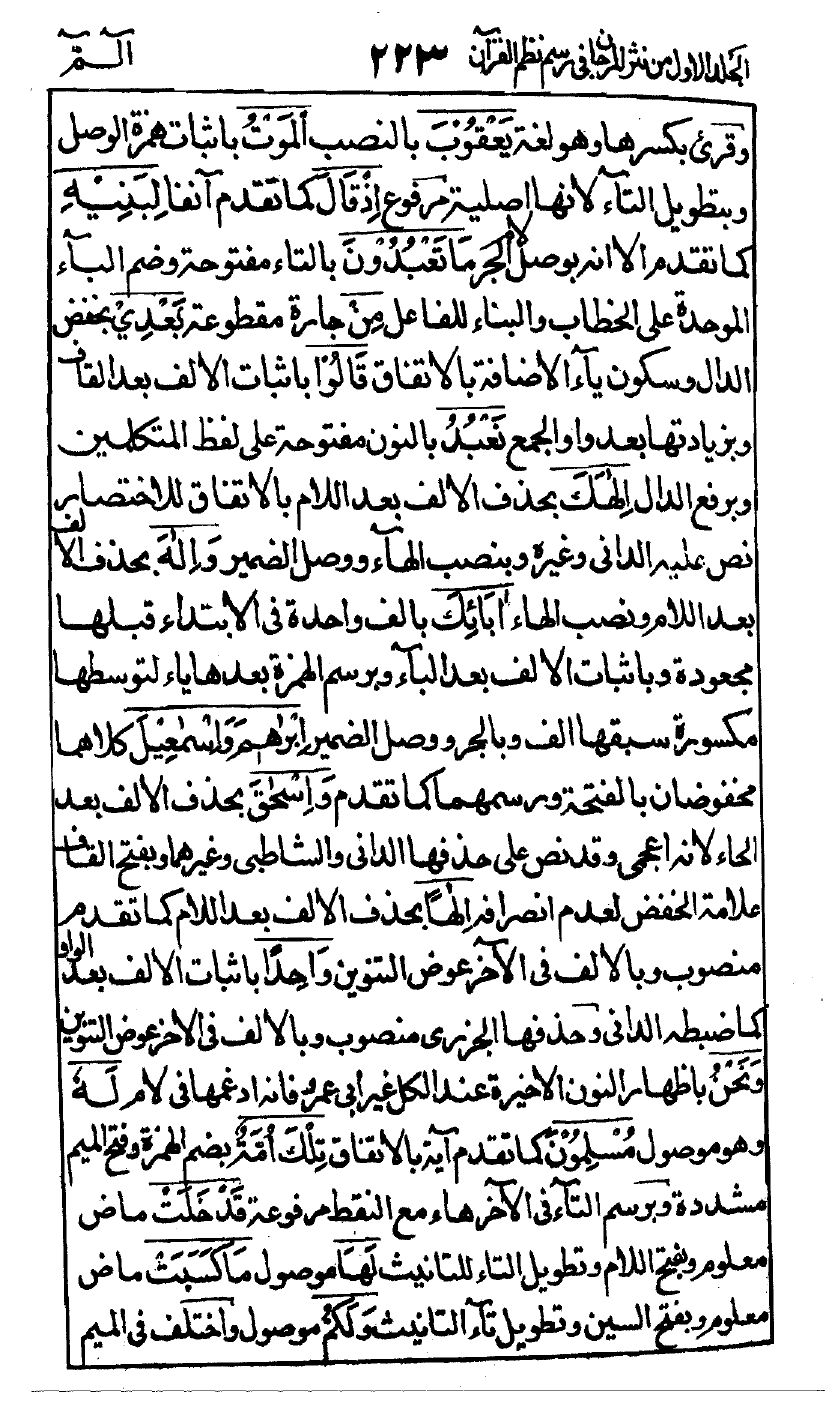 الجلد الاول من نثر المرجان فى رسم نظم القرآن ٢٢٣ الٓـمّٓ
وقرئ بكسرها وهو لغة يَعْقُوْبَ بالنصب اَلْمَوْتُ باثبات همزة الوصل
وبتطويل التآء لانها اصلية مرفوع اِذْ قَالَ كما تقدم آنفا لِبَنِيْهِ
كما تقدم الا انه بوصل لام الجر مَا تَعْبُدُوْنَ بالتاء مفتوحة وضم البآء
الموحدة على الخطاب والبناء للفاعل مِنْ جارة مقطوعة بَعْدِيْ بخفض
الدال وسكون يآء الاضافة بالاتفاق قَالُوْا باثبات الالف بعد القاف
وبزيادتها بعد واو الجمع نَعْبُدُ بالنون مفتوحة على لفظ المتكلمين
وبرفع الدال اِلٰهَكَ بحذف الالف بعد اللام بالاتفاق للاختصار
نص عليه الدانى وغيره وبنصب الهآء ووصل الضمير وَاِلٰهَ بحذف الالف
بعد اللام ونصب الهاء اٰبَائِكَ بالف واحدة فى الابتداء قبلها
مجعودة وباثبات الالف بعد البآء وبرسم الهمزة بعدها ياء لتوسطها
مكسورة سبقها الف وبالجر ووصل الضمير اِبْرٰهٖمَ وَاِسْمٰعِيْلَ كلاهما
مخفوضان بالفتحة ورسمهما كما تقدم وَاِسْحٰقَ بحذف الالف بعد
الحاء لانه اعجمى وقد نص على حذفها الدانى والشاطبى وغيرهما وبفتح القاف
علامة الخفض لعدم انصرافه اِلٰهًا بحذف الالف بعد اللام كما تقدم
منصوب وبالالف فى الآخر عوض التنوين وَاحِدًا باثبات الالف بعد الواو
كما ضبطه الدانى وحذفها الجزرى منصوب وبالالف فى الاخر عوض التنوين
وَنَحْنُ باظهار النون الاخيرة عند الكل غير ابى عمرو فانه ادغمها فى لام لَهٗ
وهو موصول مُسْلِمُوْنَ كما تقدم آية بالاتفاق تِلْكَ اُمَّةٌ بضم الهمزة وفتح الميم
مشددة وبرسم التآء فى الآخر هاء مع النقط مرفوعة قَدْ خَلَتْ ماض
معلوم وبفتح اللام وتطويل التاء للتانيث لَهَا موصول مَا كَسَبَتْ ماض
معلوم وبفتح السين وتطويل تآء التانيث وَلَكُمْ موصول واختلف فى الميم